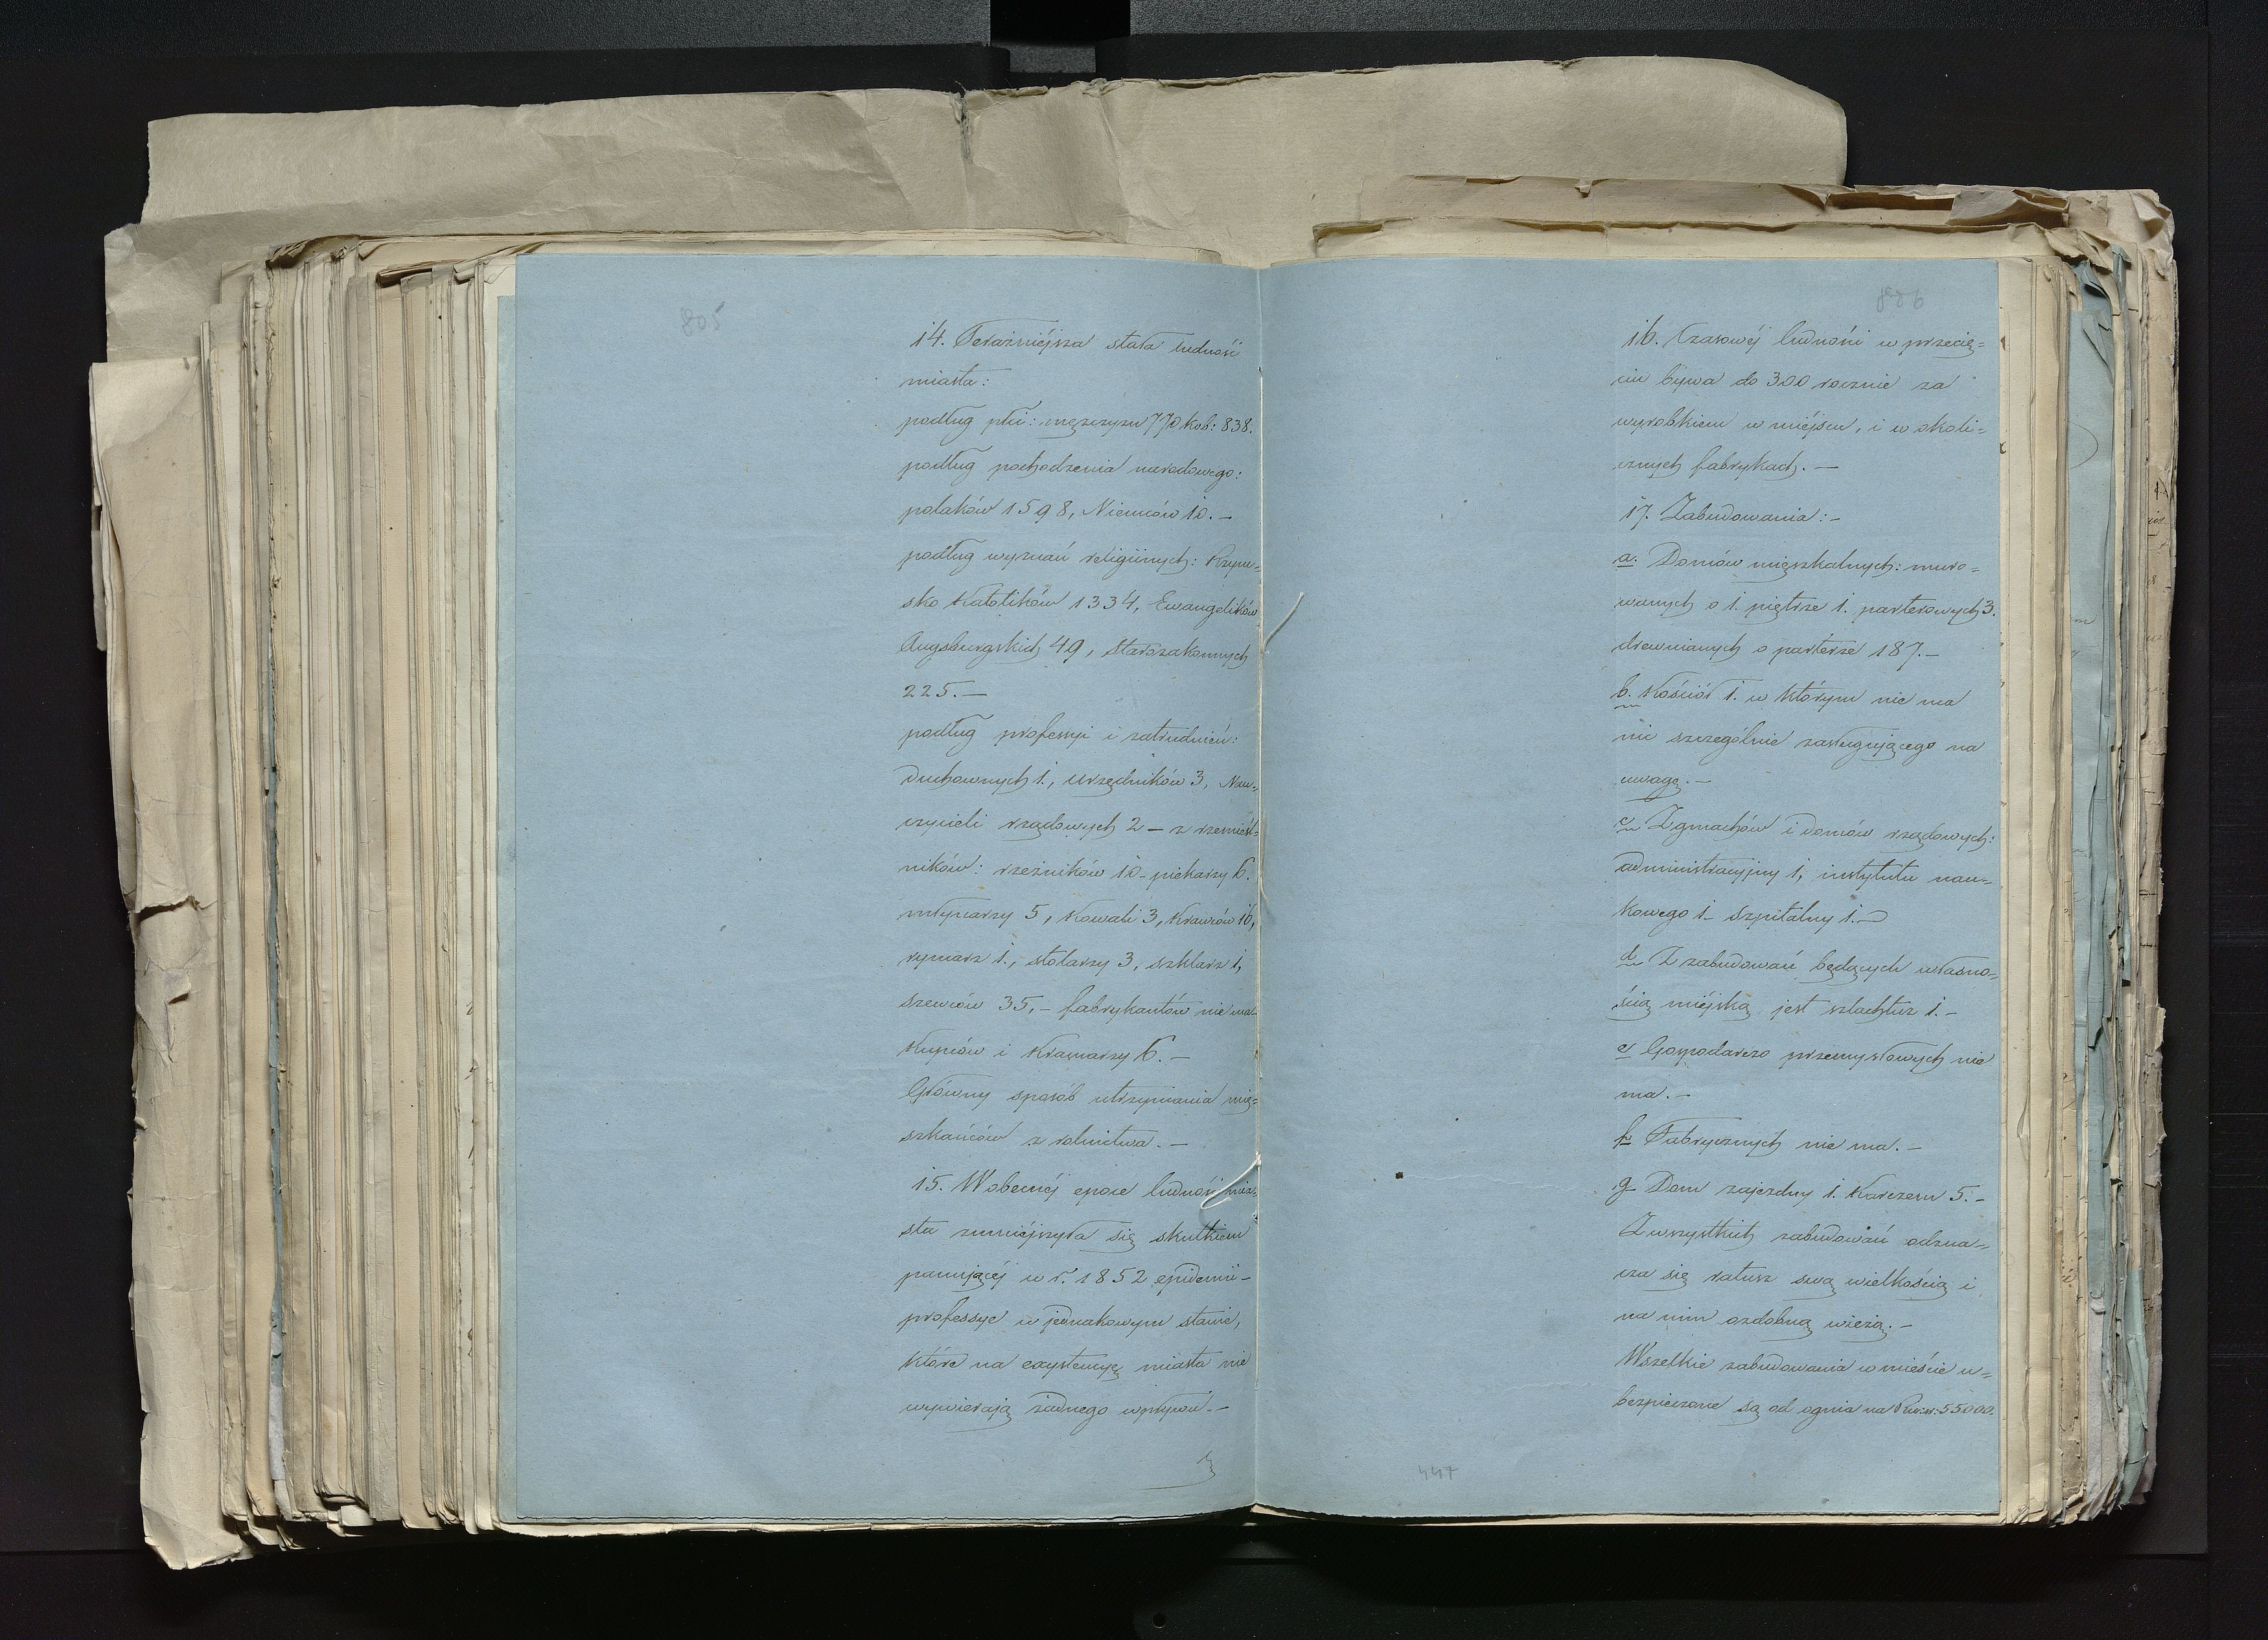 805
14. Teraźniéjsza stała ludność
miasta:
podług płci: męzczyzn 770 kob: 838.
podług pochodzenia narodowego:
polaków 1598, Niemców 10. –
podług wyznań religiinych: Rzym=
sko Katolików 1334, Ewangelików
Augsburgskich 49, Starozakonnych
225. –
podług professyi i zatrudnień:
Duchownych 1., Urzędników 3, Nau=
czycieli rządowych 2 – z rzemieśl=
ników: rzeźników 10 – piekarzy 6.
młynarzy 5, Kowali 3, Krawców 16,
rymarz 1., stolarzy 3, szklarz 1,
szewców 35, – fabrykantów nie ma
Kupców i Kramarzy 6. –
Główny sposób utrzymania mię=
szkańców z rolnictwa. –
15. W obecnéj epoce ludność mia=
sta zmniéjszyła się skutkiem
panującéj w r. 1852 epidemii –
professye w jednakowym stanie,
które na exystencyę miasta nie
wywierają żadnego wpływu. –
806
16. Czasowéj ludności w przecię=
ciu bywa do 300 rocznie za
wyrobkiem w miéjscu, i w okoli=
cznych fabrykach. –
17. Zabudowania: –
a. Domów mięszkalnych: muro=
wanych o 1. piętrze 1. parterowych 3.
drewnianych o parterze 187. –
b. Kościół 1. w którym nie ma
nic szczególnie zasługującego na
uwagę. –
c Z gmachów i domów rządowych:
administracyjny 1, instytutu nau=
kowego 1 – szpitalny 1. –
d Z zabudowań będących własno=
ścią miéjską jest szlachtuz 1. –
e Gospodarczo przemysłowych nie
ma. –
f Fabrycznych nie ma. –
g Dom zajezdny 1. Karczem 5. –
Z wszystkich zabudowań odzna=
cza się ratusz swą wielkością i
na nim ozdobną wieżą. –
Wszelkie zabudowania w mieście u=
bezpieczone są od ognia na Rub: sr: 55000.
447